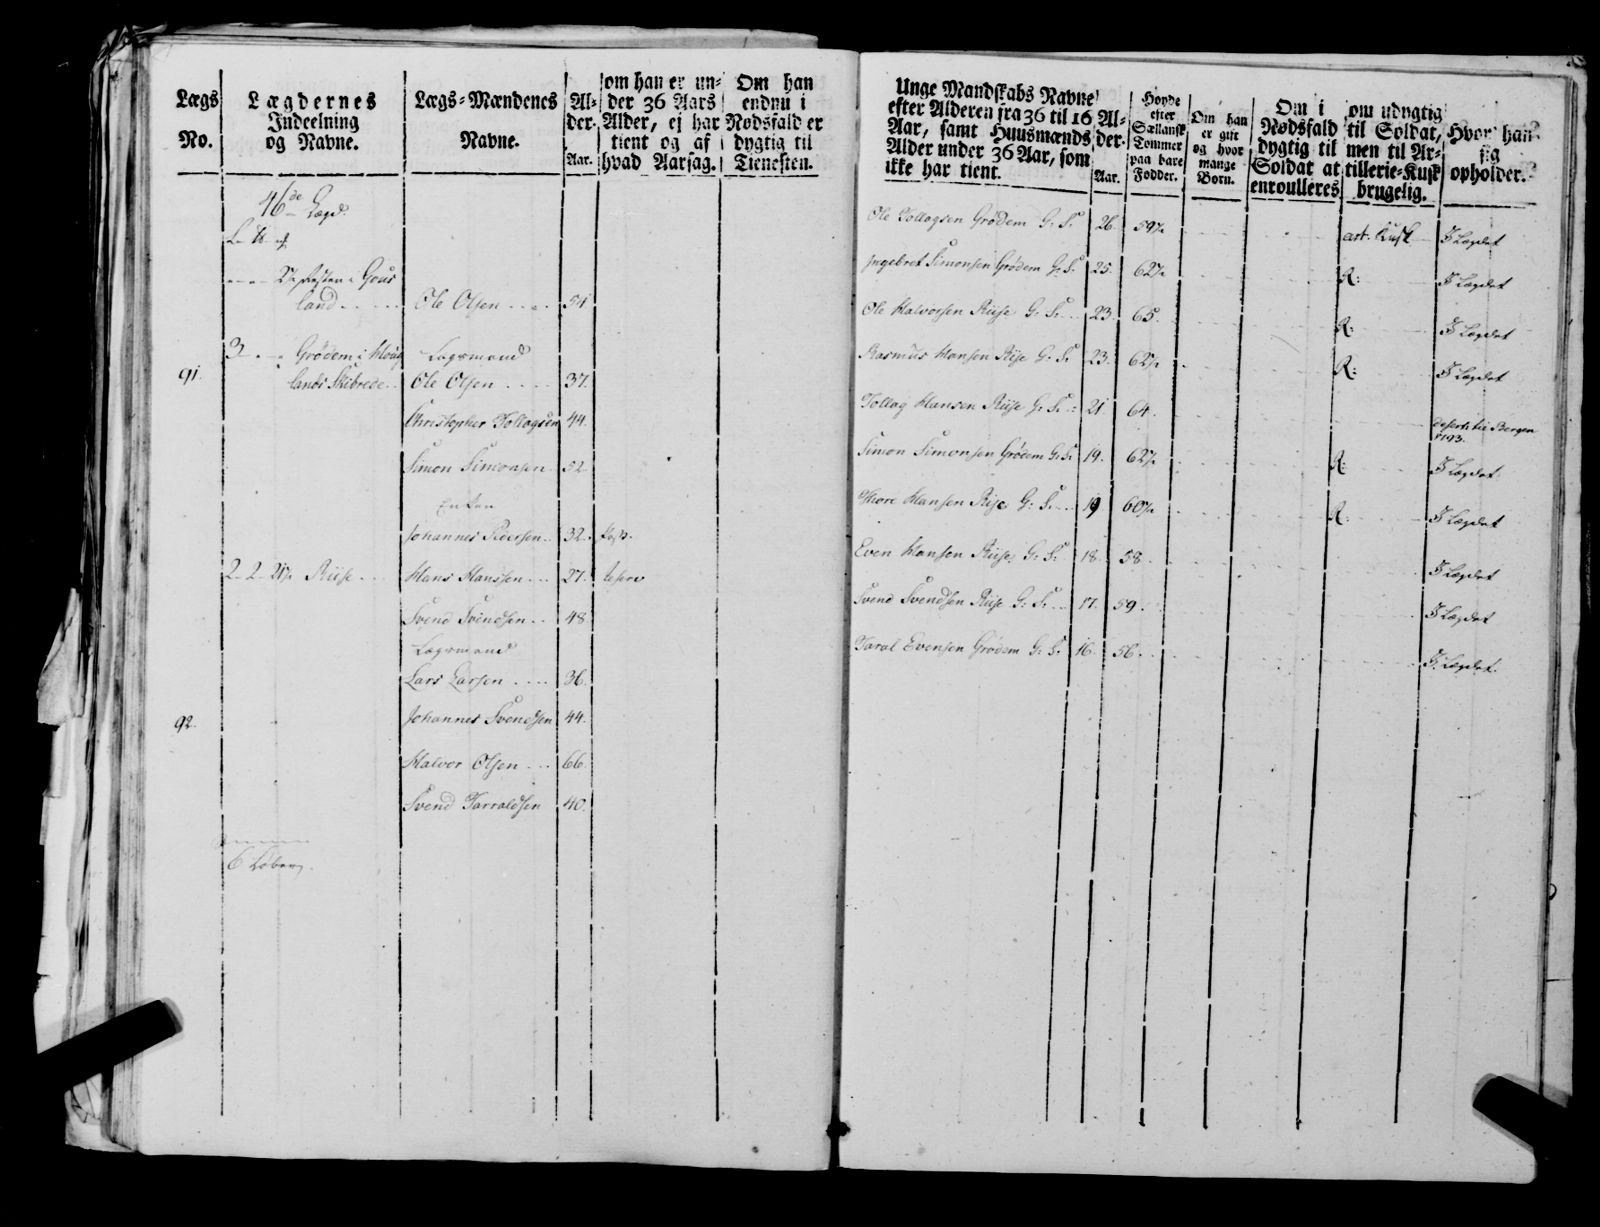 Lægs
No.
Lægdernes
Indeelning
og Navne.
Lægs-Mændenes
Navne.
Al-
der.
Aar.
om han er un-
der 36 Aars
Alder, ej har
tient og af
hvad Aarsag.
Om han
endnu i
Nødsfald er
dygtig til
Tienesten.
46de Lægd.
land . . . Ole Olsen . . . 54
3 Grødem i
91. lands Skibrede . . Lægsmand
Ole Olsen . . . . 37.
Christopher Tollagsen 44.
Simon Simonsen 52.
Enken
Johannes Pedersen . . 32.
Riise . . . Hans Hanssen . . . 37.
Svend Svendsen . . 48
Lægsmand
Lars Larsen . . . . 36.
92. Johannes Svendsen 44.
Halvor Olsen . . . 66.
Svend Tarraldsen 40.
6 Løber
Unge Mandskabs Navne
efter Alderen fra 36 til 16
Aar, samt Huusmænds
Alder under 36 Aar, som
ikke har tient.
Al-
der.
Aar.
Høyde
efter
Sællansk
Tommer
paa bare
Fødder.
Om han
er gift
og hvor
mange
Børn.
Om i
Nødsfald
dygtig til
Soldat at
enroulleres
om udygtig
til Soldat,
men til Ar-
tillerie-Kusk
brugelig.
Hvor han
sig
opholder.
Ole Tollagsen Grødem G: S. 26. 59½ art. Kusk I Lægdet
Ingebret Simonsen Grødem G: S. 25. 62½ R: I Lægdet
Ole Halvorsen Riise G: S. . . 23. 65. R: I Lægdet
Rasmus Hansen Riise G: S. 23. 62½ R: I Lægdet
Tollag Hansen Riise G: S. 21 64. desert: til Bergen
1793.
Simon Simonsen Grødem G: S. 19. 62½ R: I Lægdet
Thore Hansen Riise G: S. . . 19 60½ R: I Lægdet
Even Hansen Riise G: S. 18. 58. I Lægdet
Svend Svendsen Riise G: S. . . 17. 59. I Lægdet
Taral Evensen Grødem G: S. 16. 56. I Lægdet.